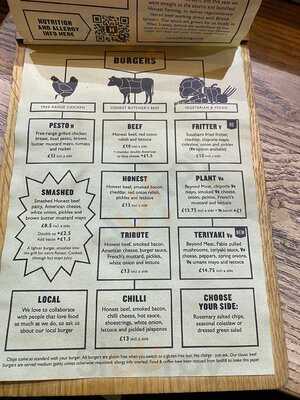 NUTRITION
AND ALLERGY
INFO HERE
BURGERS
FREE RANGE CHICKEN
HONEST BUTCHER'S BEEF
VEGETARIAN & VEGAN
PESTO N
Free-range grilled chicken
breast, beef pesto, brown
butter mustard mayo, tomato
and rocket
£13 incl a side
BEEF
Honest beef, red onion
relish and lettuce
£10 incl a side
+£1.5
FRITTER V
Southern fried fritter,
cheddar, chipotle mayo,
coleslaw, onion and pickles
£13 incl a side
SMASHED
Smashed Honest beef
patty, American cheese,
white onion, pickles and
brown butter mustard mayo
£8.5 incl a side
Double up +£2.5
Add bacon +£1.5
A lighter burger, smashed into
the grill for extra flavour. Cooked
through but super juicy
HONEST
Honest beef, smoked bacon,
cheddar, red onion relish,
pickles and lettuce
£13 incl a side
PLANT Ve
Beyond Meat, chipotle Ve
mayo, smoked Ve cheese,
onion, pickles, French's
mustard and lettuce
£13.75 incl a side
TRIBUTE
Honest beef, smoked bacon,
American cheese, burger sauce,
French's mustard, pickles,
white onion and lettuce
£13 incl a side
TERIYAKI Ve
NEW
Beyond Meat, Fable pulled
mushrooms, teriyaki sauce, Ve
cheese, peppers, spring onions,
Ve umami mayo and lettuce
£14.75 incl a side
LOCAL
We love to collaborate
with people that love food
as much as we do, so ask us
about our local burger
CHILLI
Honest beef, smoked bacon,
chilli cheese, hot sauce,
shoestrings, white onion,
lettuce and pickled jalapenos
£13 incl a side
CHOOSE
YOUR SIDE:
Rosemary salted chips,
seasonal coleslaw or
dressed green salad
Chips come as standard with your burger. All burgers are gluten free when you switch to a gluten free bun. No charge - just ask. Our classic beef
burgers are served medium (pinky) unless otherwise requested;